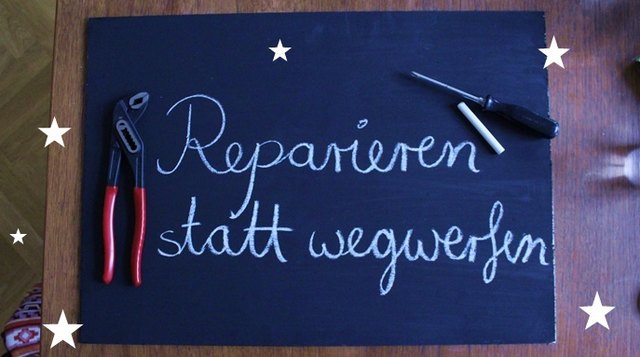 Reparieren
statt wegwerfen